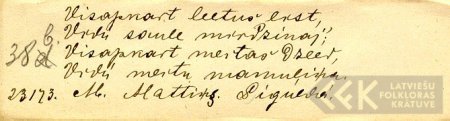 Visapkart leetus lest,
Vidū saule mirdzinaj;
38 Visapkart meitas dzeed,
Vidū meitu mamuliņa.
23173. M. Mattiss. Siguldā.
LATVIEŠU
FOLKLORAS
KRĀTUVE